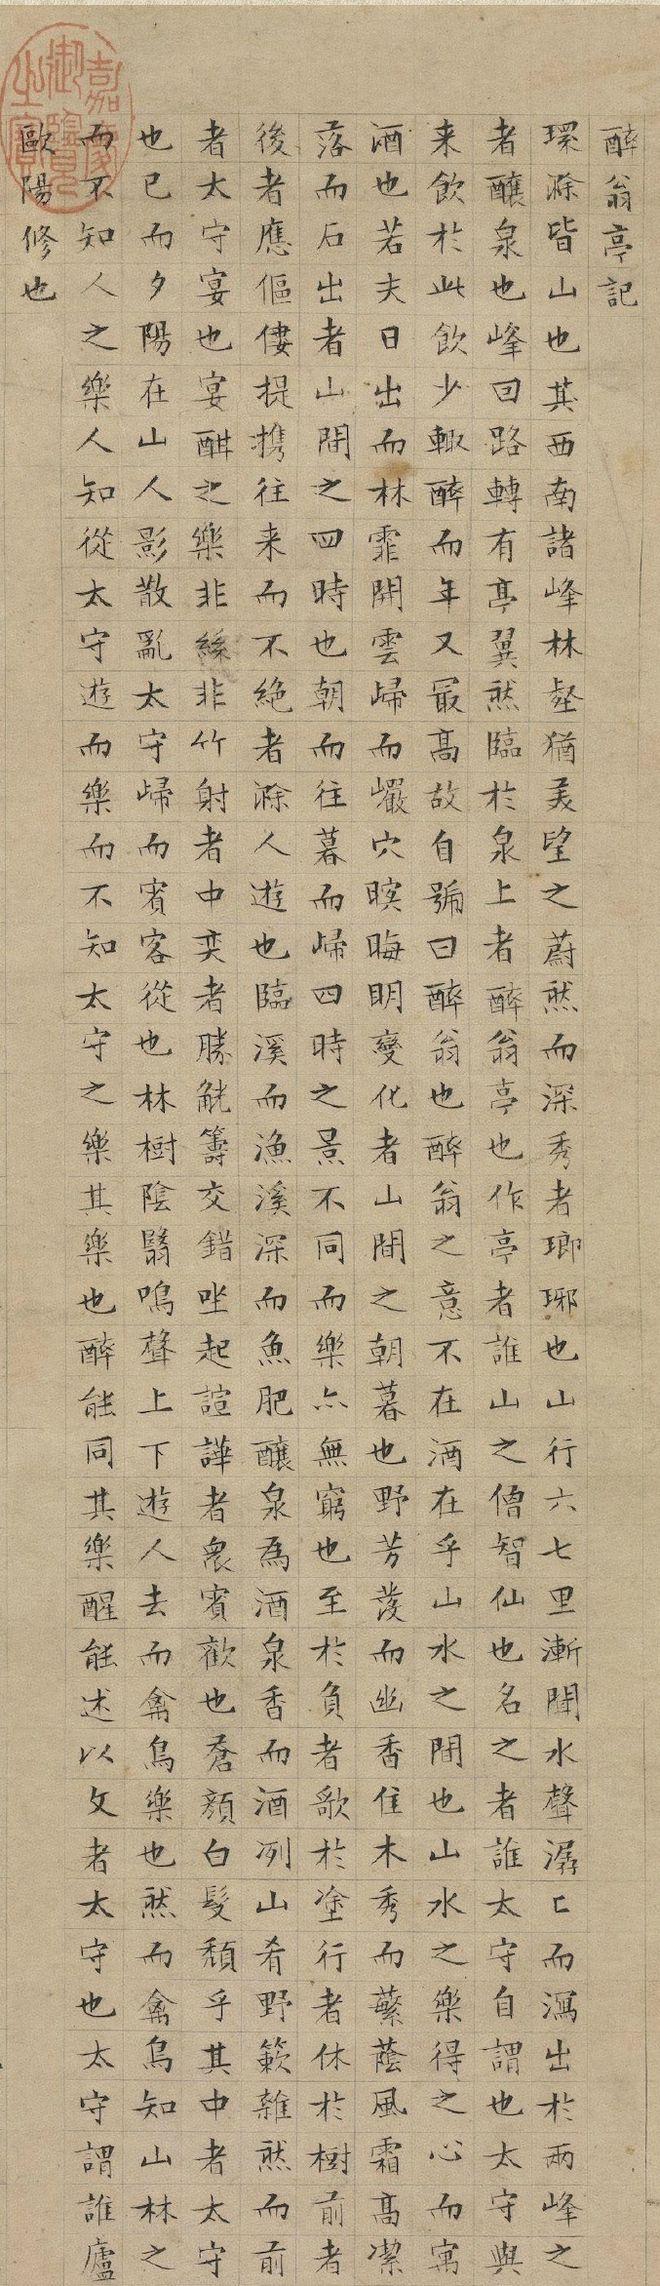 醉翁亭記
環滁皆山也其西南諸峰林壑猶美望之蔚然而深秀者瑯琊也山行六七里漸聞水聲潺〻而瀉出於兩峰之
者釀泉也峰回路轉有亭翼然臨於泉上者醉翁亭也作亭者誰山之僧智仙也名之者誰太守自謂也太守與
来飲於此飲少輙醉而年又最髙故自號曰醉翁也醉翁之意不在酒在乎山水之間也山水之樂得之心而寓
酒也若夫日出而林霏開雲歸而巖穴暝晦明變化者山間之朝暮也野芳發而幽香佳木秀而蘩蔭風霜髙潔
落而石出者山間之四時也朝而往暮而歸四時之景不同而樂亦無窮也至於負者歌於塗行者休於樹前者
後者應傴僂提携往来而不絶者滁人遊也臨溪而漁溪深而魚肥釀泉為酒泉香而酒冽山肴野簌雜然而前
者太守宴也宴酣之樂非絲非竹射者中奕者勝觥籌交錯坐起諠譁者衆賓歡也蒼顔白髮頽乎其中者太守
也已而夕陽在山人影散亂太守歸而賓客從也林樹陰翳鳴聲上下遊人去而禽鳥樂也然而禽鳥知山林之
而不知人之樂人知從太守遊而樂而不知太守之樂其樂也醉能同其樂醒能述以文者太守也太守謂誰廬
歐陽修也
嘉慶御覽之寶